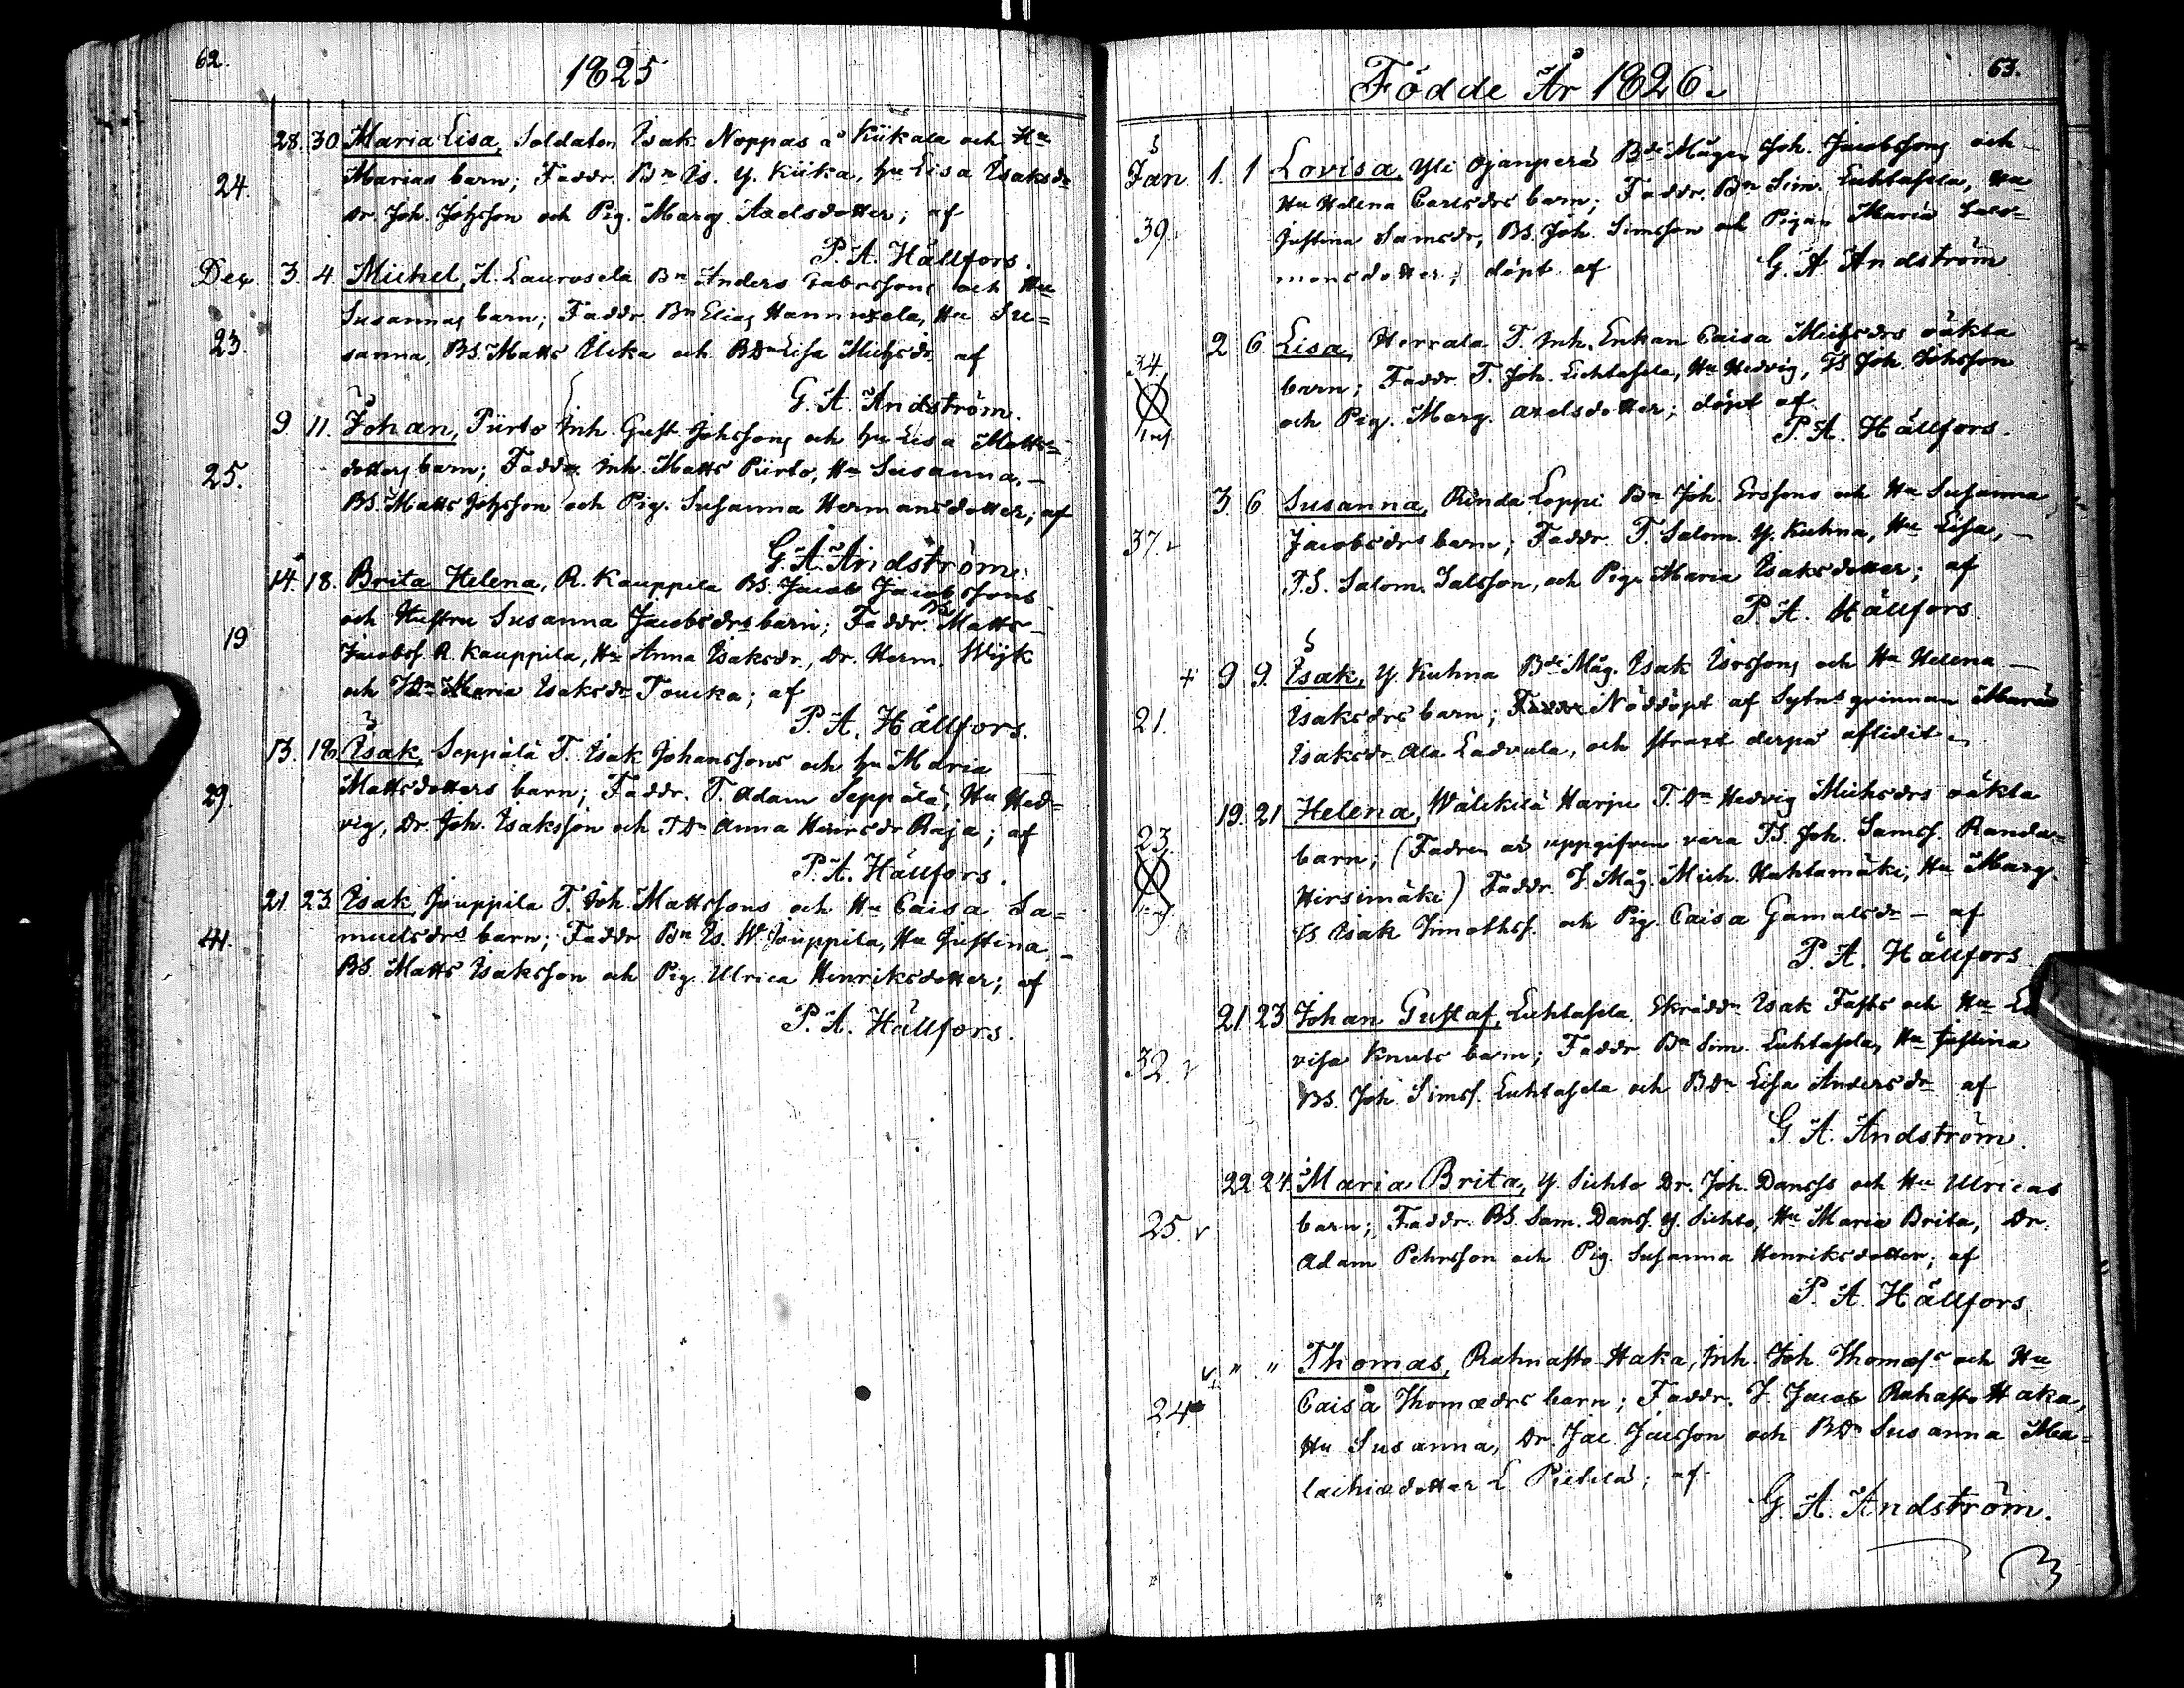 62.
1825
28. 30. Maria Lisa, Soldaten Isak Noppas å Kiikala och Hu
24. Marias barn; Faddr. Bn Is. Y. Kiika, hu Lisa Isaksdr
Dr. Joh. Johsson och Pig. Marg. Axelsdotter; af
P. A. Hällfors.
Dec 3. 4. Michel, A. Laurosela Bn Anders Gabrssons och Hu
Susannas barn; Faddr. Bn Elias Hannuxela, Hu Su=
23. sanna, BS. Matts Ulika och BDr Lisa Michsdr. af
G. A. Andström.
9. 11. Johan, Piirto Inh. Gust. Johssons och hu Lisa Matts=
25. dotters barn; Faddr. Inh. Matts Piirto, Hu Susanna, –
BS. Matts Johsson och Pig. Susanna Hermansdotter; af
G. A. Andström.
14. 18. Brita Helena, R. Kauppila BS. Jacob Jacobssons
och Hustru Susanna Jacobsdrs barn; Faddr. BS Matts –
19 Jacobss. R. Kauppila, Hu Anna Isaksdr., Dr. Herm. Wijk
och Maria Isaksdr Toucka; af
P. A. Hällfors.
13. 18. Isak, Seppälä T. Isak Johanssons och hu Maria –
29. Mattsdotters barn; Faddr. T. Adam Seppälä, Hu Hed=
vig, Dr. Joh. Isaksson och TDr Anna Henrsdr Raja; af
P. A. Hällfors.
21. 23 Isak, Jouppila T. Joh. Mattssons och Hu Caisa Sa=
41. muelsdrs barn; Faddr Bn Is. W. Jouppila, Hu Justina –
BS. Matts Isaksson och Pig Ulrica Henriksdotter; af
P. A. Hällfors.
Födde År 1826.
63.
Jan 1. 1 Lovisa, Yli Ojanperä Bde Mågen Joh. Jacobssons och –
39. Hu Helena Carlsdrs barn; Faddr. Bn Sim. Luhtasela, Hu
Justina Samsdr, BS. Joh. Simsson och Pigan Maria Salo=
monsdotter; döpt af G. A. Andström
2 6. Lisa, Herrala T. Inh. Enkan Caisa Michsdrs oäkta
34. barn; Faddr. T. Joh. Luhtasela, Hu Hedvig, TS Joh. Johsson
och Pig. Marg. Axelsdotter; döpt af
P. A. Hällfors.
3. 6 Susanna, Rinda Loppi Bn Joh. Erssons och Hu Susanna
37. v Jacobsdrs barn; Faddr. T. Salom. Y. Kuhna, Hu Lisa, –
T.S. Salom. Salsson, och Pig. Maria Isaksdotter; af
P. A. Hällfors.
+ 9 9. Isak, Y. Kuhna Bde Måg. Isak Isrssons och Hu Helena –
21. Isaksdrs barn; Faddr Nöddöpt af Sytns qvinnan Maria
Isaksdr Ala Ladvala, och straxt derpå aflidit –
19. 21 Helena, Wälikilä Harju T. Dr Hedvig Michsdrs oäkta
23. barn; (Fadren är uppgifven vara TS. Joh. Samss. Randa=
Hirsimäki) Faddr. T. Måg. Mich. Hahtamäki, Hu Marg.
TS Isak Timothss. och Pig. Caisa Gamalsdr – af
P. A. Hällfors
21 23 Johan Gustaf, Luhtasela Skräddn Isak Fasts och Hu Lo
32. v visa Knuts barn; Faddr. Bn Sim. Luhtasela, Hu Justina
BS. Joh. Simss. Luhtasela och BDr Lisa Andersdr af
G A. Andström.
22 24. Maria Brita, Y. Sichto Dr. Joh. Danss och Hu Ulricas
25. v barn; Faddr. BS. Sam. Danss. Y. Sichto, Hu Maria Brita, Dr.
Adam Pehrsson och Pig. Susanna Henriksdotter; af
P. A. Hällfors
" " Thomas, Rahnasto Haka, Inh. Joh. Thomæss och Hu
24 Caisa Thomædrs barn; Faddr. T. Jacob Rahasto Haka,
Hu Susanna, Dr. Jac. Jacsson och BDr Susanna Ma=
lachiædotter L. Pietilä; af
G. A. Andström.